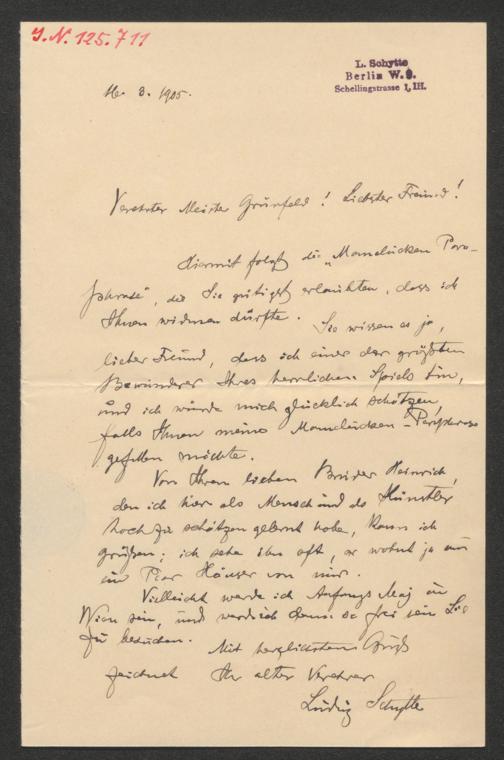 J.N. 125.711
L. Schytte
Berlin W. 9.
Schellingstrasse 1, III.
16. 3. 1905.
Verehrter Meister Grünfeld! Liebster Freund!
Hiermit folgt die „Mamelucken Para-
phrase", die Sie gütigst erlaubten, dass ich
Ihnen widmen dürfte. Sie wissen es ja,
lieber Freund, dass ich einer der größten
Bewunderer Ihres herrlichen Spiels bin,
und ich würde mich glücklich schätzen,
falls Ihnen meine Mamelucken-Paraphrase
gefallen möchte.
Von Ihrem lieben Bruder Heinrich,
den ich hier als Mensch und als Künstler
hoch zu schätzen gelernt habe, kann ich
grüßen; ich sehe ihn oft, er wohnt ja nur
ein Paar Häuser von mir.
Vielleicht werde ich Anfangs Maj in
Wien sein, und werde ich dann so frei sein Sie
zu besuchen.
Mit herzlichstem Gruß
zeichnet Ihr alter Verehrer
Ludvig Schytte